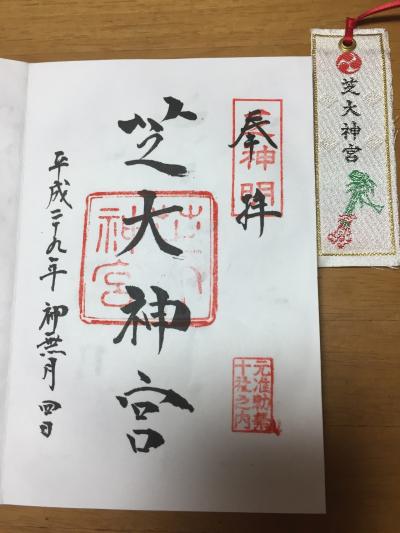 芝大神宮
奉拝
神明
元准勅祭
十社之内
芝大神宮
芝大
神宮
平成二九年 神無月 四日